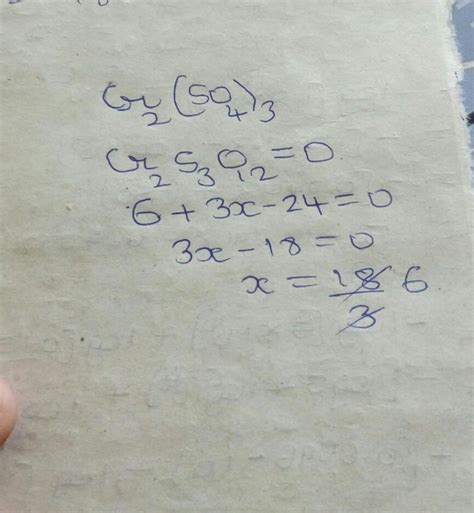 Cr₂(SO₄)₃
Cr₂S₃O₁₂=0
6+3x-24=0
3x-18=0
x=18/3 6